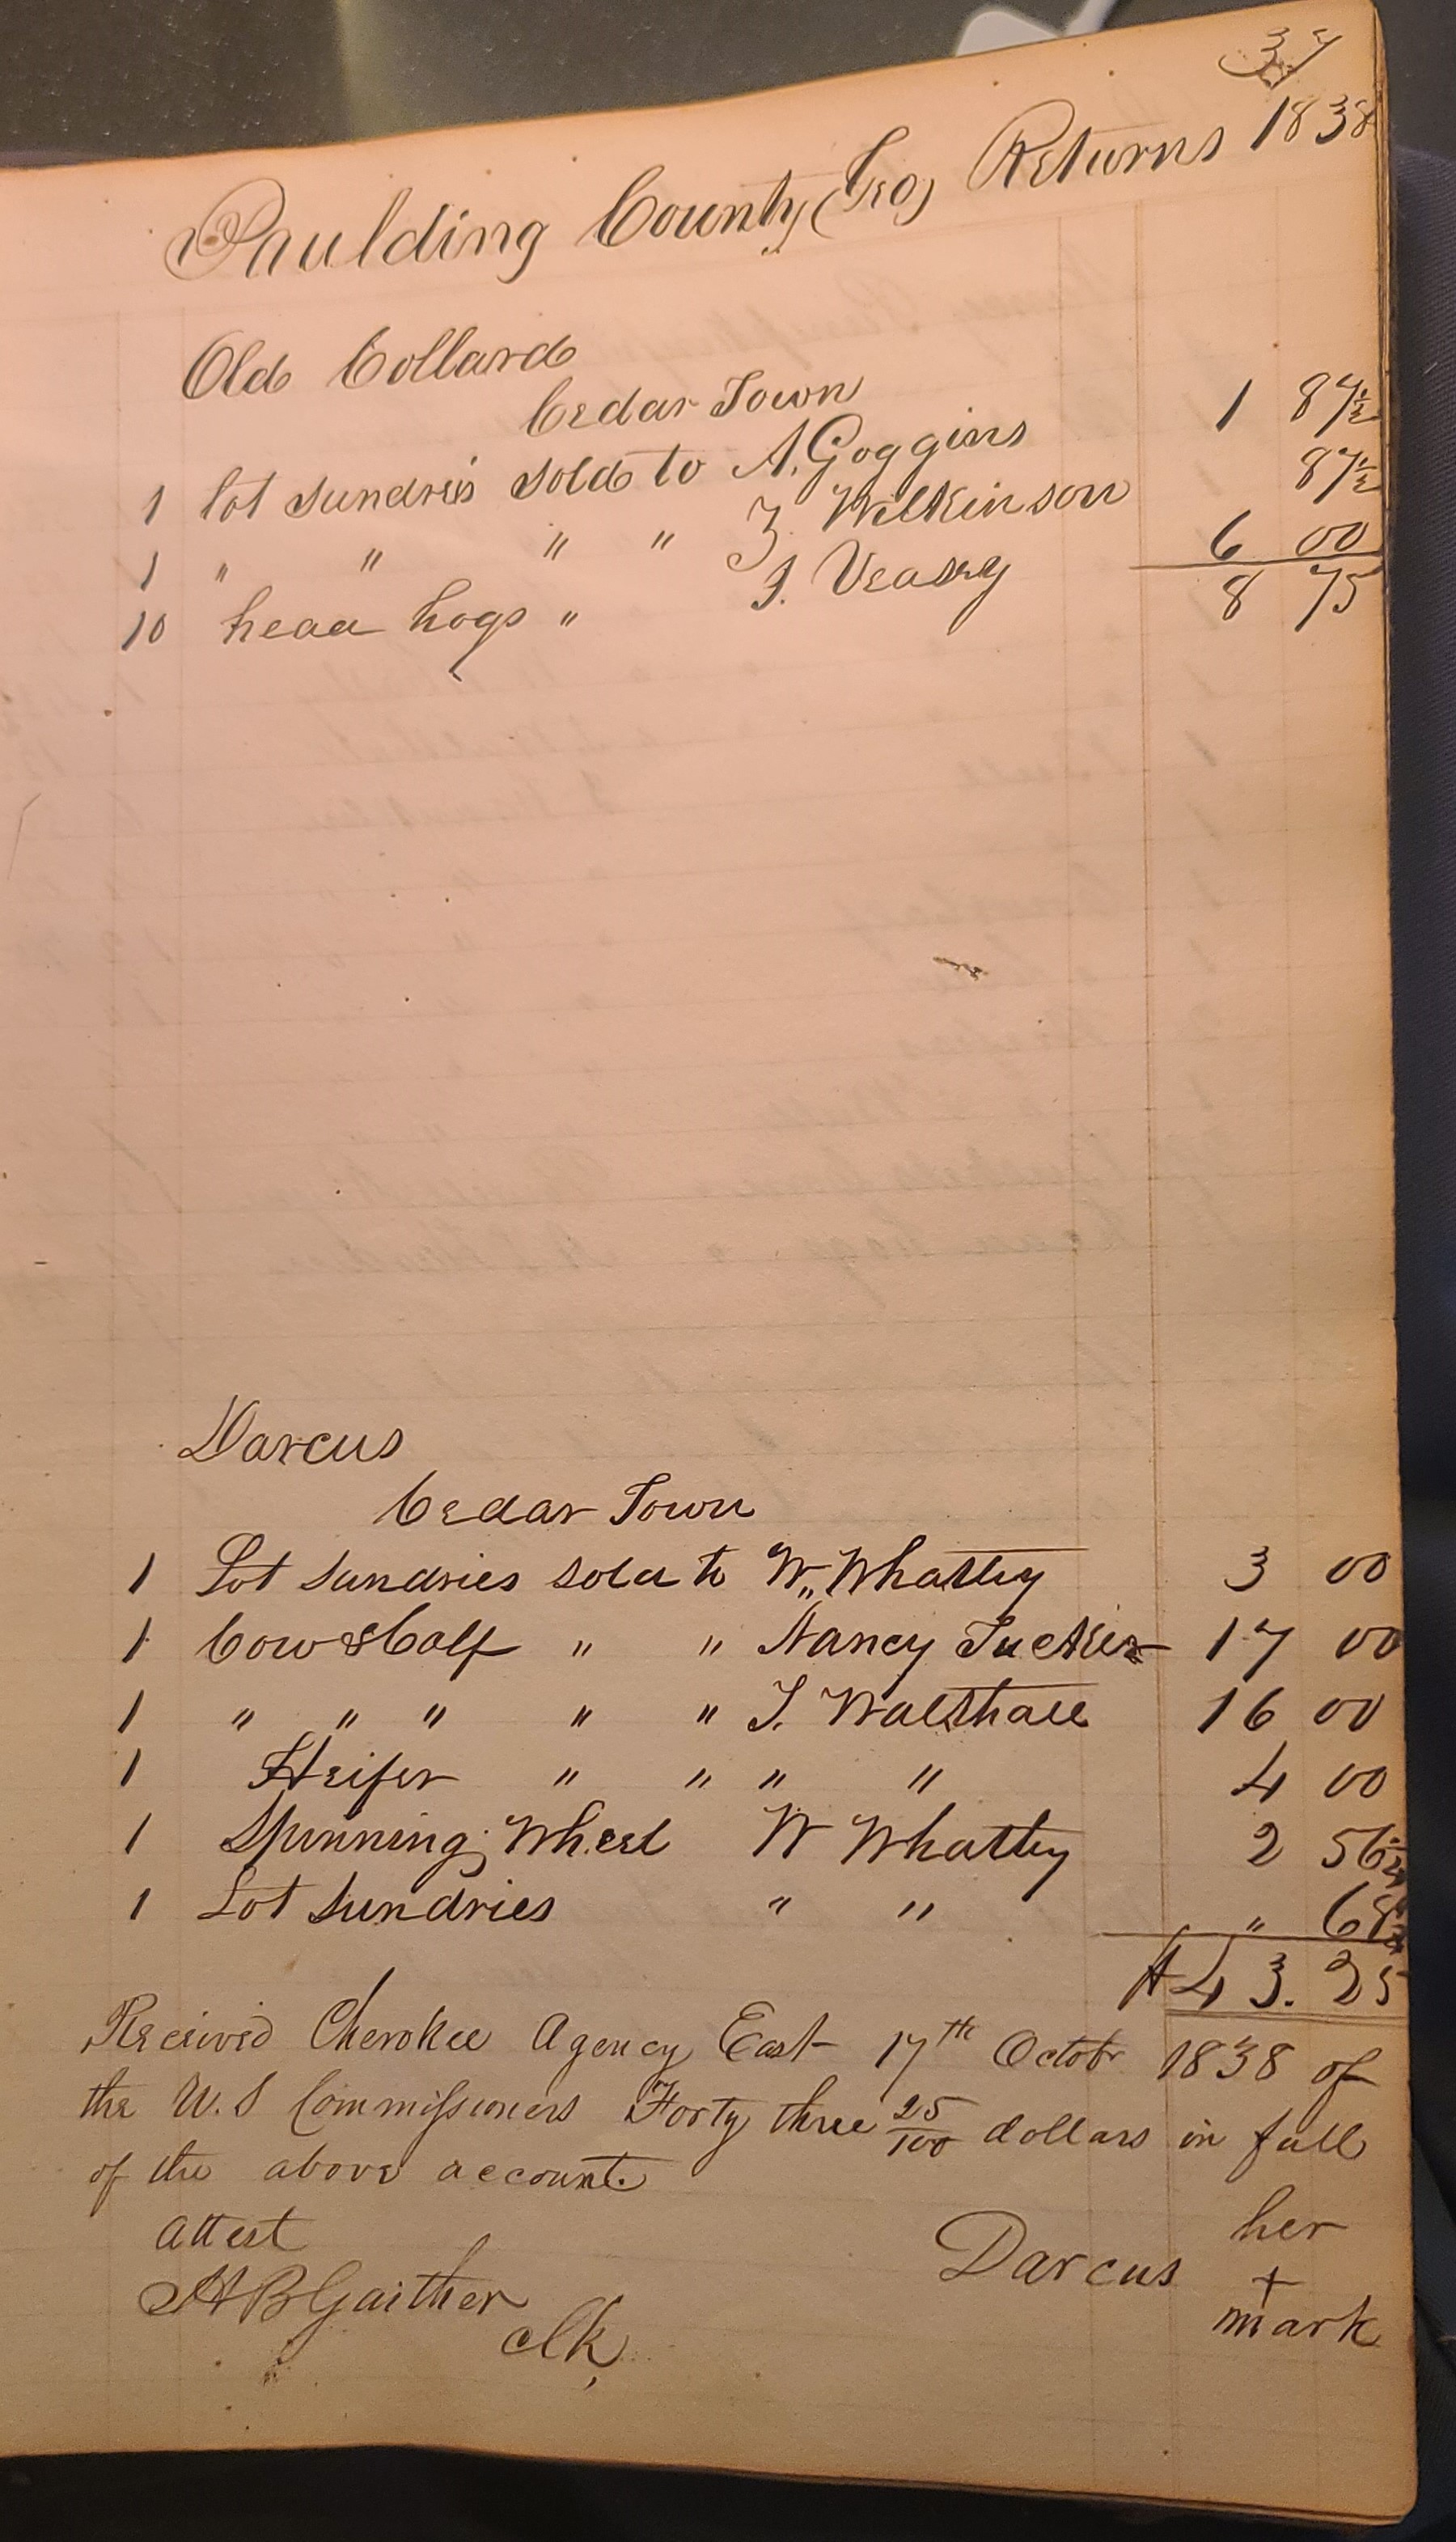 37
Paulding County, (Geo) Returns 1838
Old Collard
Cedar Town
1 lot sundries sold to A. Goggins 1 87½
1 " " " " Z. Wilkinson 87½
10 head hogs " J. Veasey 6 00
8 75
Darcus
Cedar Town
1 Lot sundries sold to W. Whatley 3 00
1 Cow & Calf " " Nancy Tucker 17 00
1 " " " " " T. Walthall 16 00
1 Heifer " " " " 4 00
1 Spinning Wheel W Whatley 2 56¼
1 Lot sundries " " " 68¾
$43.25
Received Cherokee Agency East 17th Octobr 1838 of
the U.S Commissioners Forty three 25/100 dollars in full
of the above account.
attest her
Darcus +
A B Gaither mark
Clk,